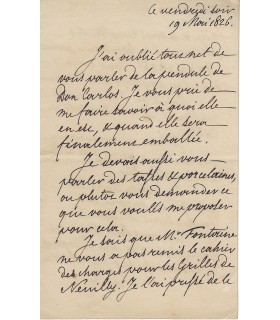 ce vendredi soir
19 Mai 1826.
J'ai oublié tout net de
vous parler de la pendule de
Don Carlos. Je vous prie de
me faire savoir à quoi elle
en est, & quand elle sera
finalement emballée.
Je devais aussi vous
parler des tasses & porcelaines,
ou plutot vous demander ce
que vous voulés me proposer
pour cela.
Je sais que Mr Fontaine
ne vous a pas remis le cahier
des charges pour les Grilles de
Neuilly. Je l'ai pressé de le